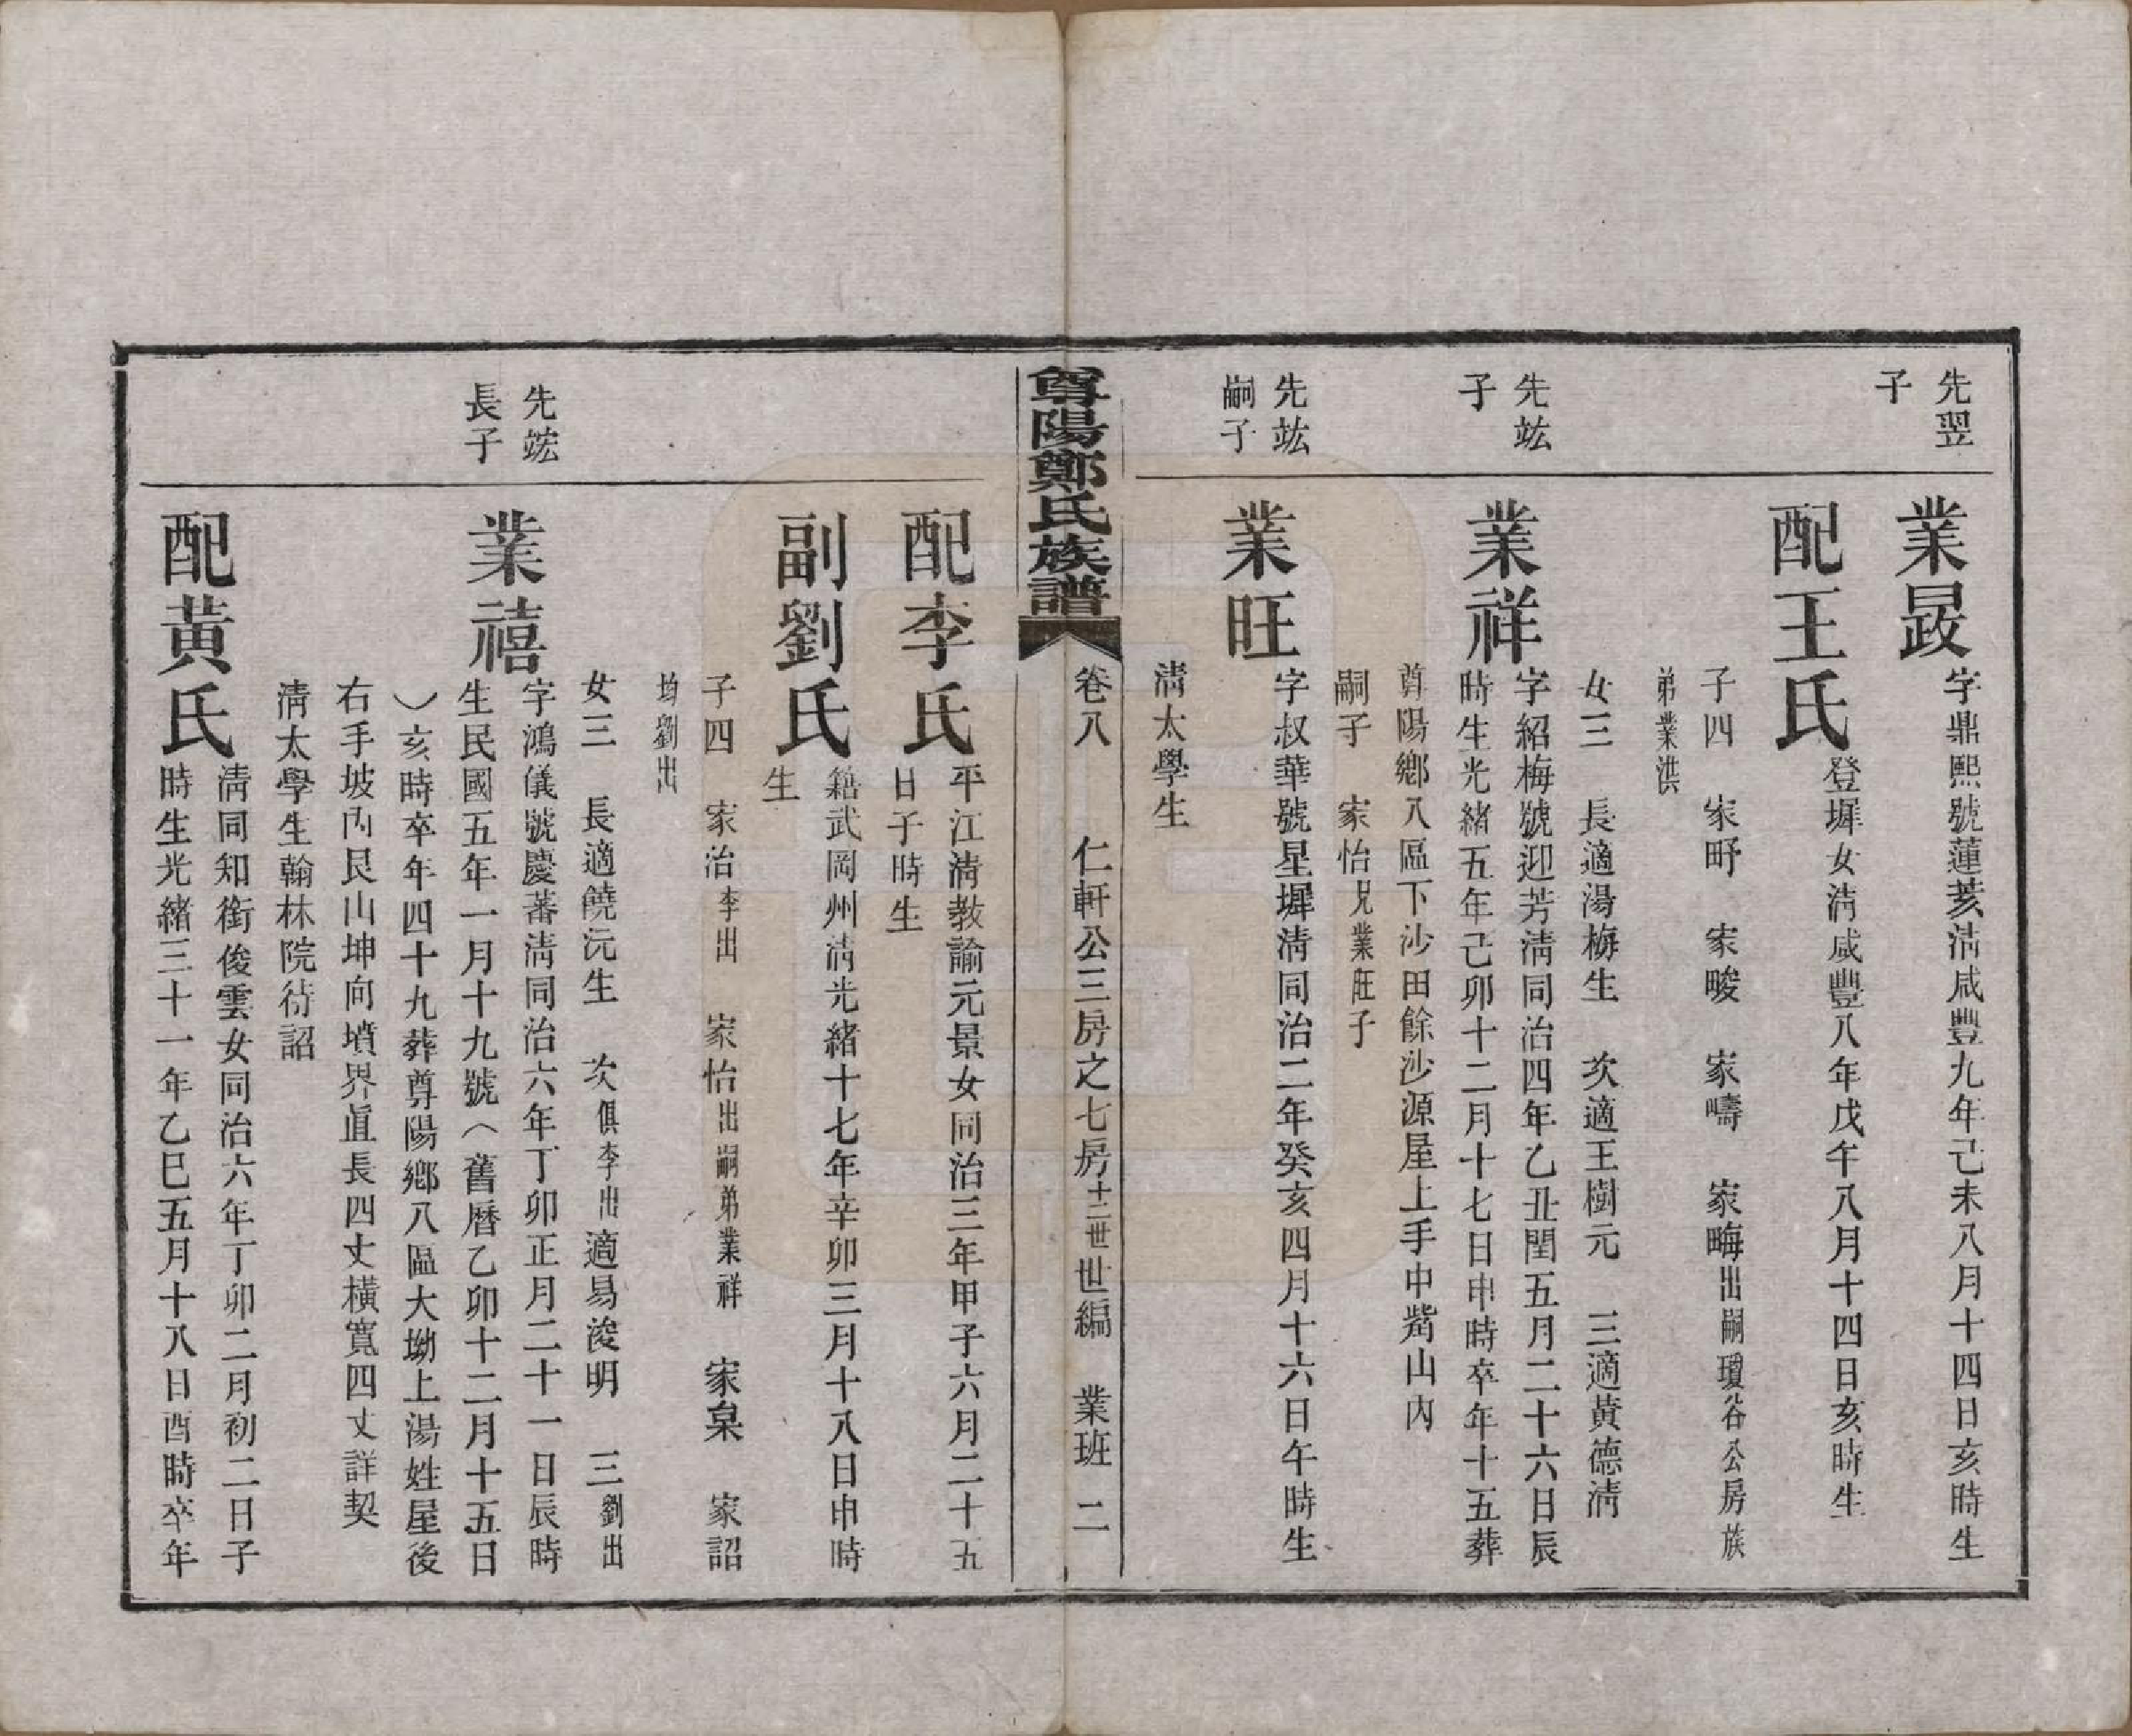 先翌
子
業㫤字鼎熙號蓮荄淸咸豐九年己未八月十四日亥時生
配王氏登墀女淸咸豐八年戊午八月十四日亥時生
子四　家野　家畯　家疇　家畮出嗣瓊谷公房族
弟業洪
女三　長適湯梅生　次適王樹元　三適黃德淸
先竑
子
業祥字紹梅號迎芳淸同治四年乙丑閏五月二十六日辰
時生光緒五年己卯十二月十七日申時卒年十五葬
尊陽鄉八區下沙田餘沙源屋上手中嵤山內
嗣子　家怡兄業旺子
先竑
嗣子
業旺字叔華號星墀淸同治二年癸亥四月十六日午時生
淸太學生
尊陽鄭氏族譜　卷八　仁軒公三房之七房十二世世編　業班　二
配李氏平江淸敎諭元景女同治三年甲子六月二十五
日子時生
副劉氏籍武岡州淸光緒十七年辛卯三月十八日申時
生
子四　家治李出　家怡出嗣弟業祥　家臬　家詔
均劉出
女三　長適饒沅生　次俱李出適易浚明　三劉出
先竤
長子
業禧字鴻儀號慶蕃淸同治六年丁卯正月二十一日辰時
生民國五年一月十九號（舊曆乙卯十二月十五日
）亥時卒年四十九葬尊陽鄉八區大坳上湯姓屋後
右手坡內艮山坤向墳界直長四丈橫寬四丈詳契
淸太學生翰林院待詔
配黃氏淸同知銜俊雲女同治六年丁卯二月初二日子
時生光緒三十一年乙巳五月十八日酉時卒年